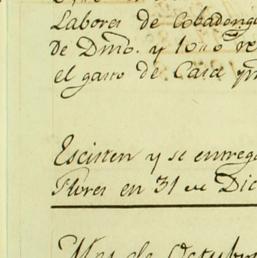 Labores de Cobadonga
de Dmo. y 10
el gasto de Casa
Escisten y se entrega
Flores en 31 de Dic
Mes de Octubre